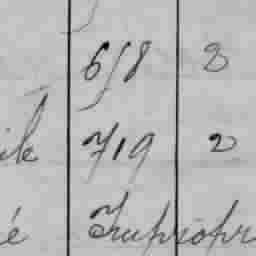 658 2
ile 719 2
é Impropr